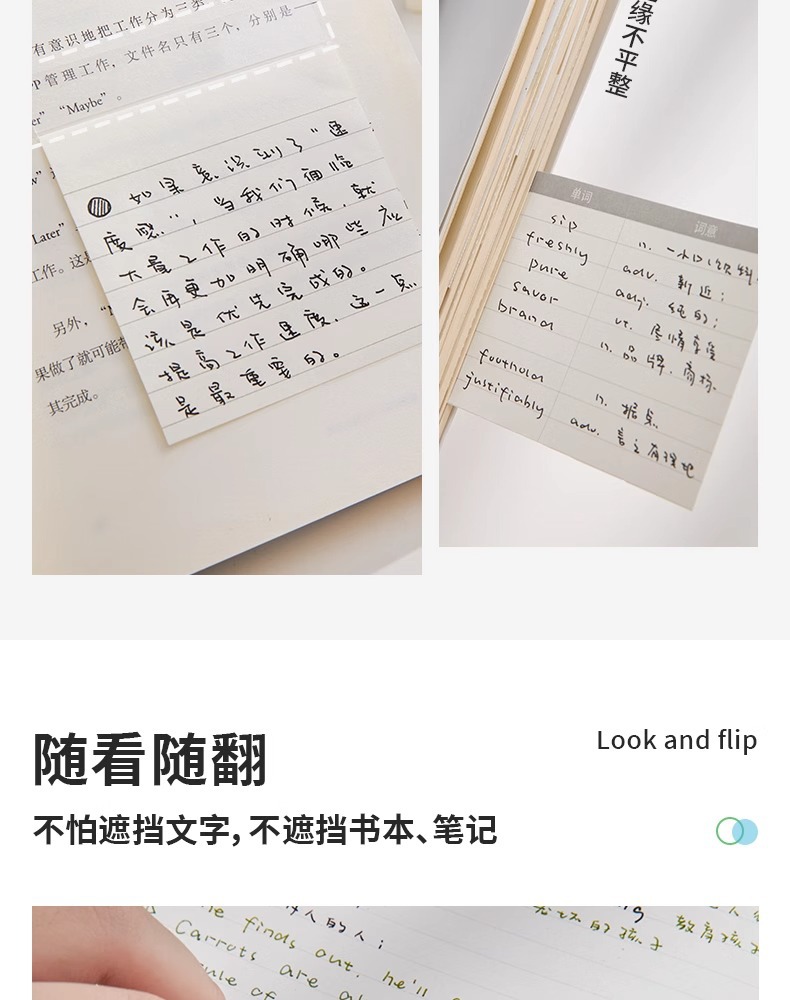 有意识地把工作分为三类
管理工作，文件名只有三个，分别是
“Maybe”。
Later”
工作。这
另外，
果做了就可能
其完成。
如果意识到了“速
度感”，当我们面临
大量工作的时候，就
会再更加明确哪些应
该是优先完成的。
提高工作速度，这一点
是最重要的。
缘不平整
单词 词意
sip n. 一小口(饮料
freshly adv. 新近；
pure adj. 纯的；
savor vt. 尽情享受
brand n. 品牌，商标
foothold n. 据点
justifiably adv. 言之有理地
随看随翻
Look and flip
不怕遮挡文字，不遮挡书本、笔记
人的人；
的孩子
教育孩子
he finds out, he'll
Carrots are
of